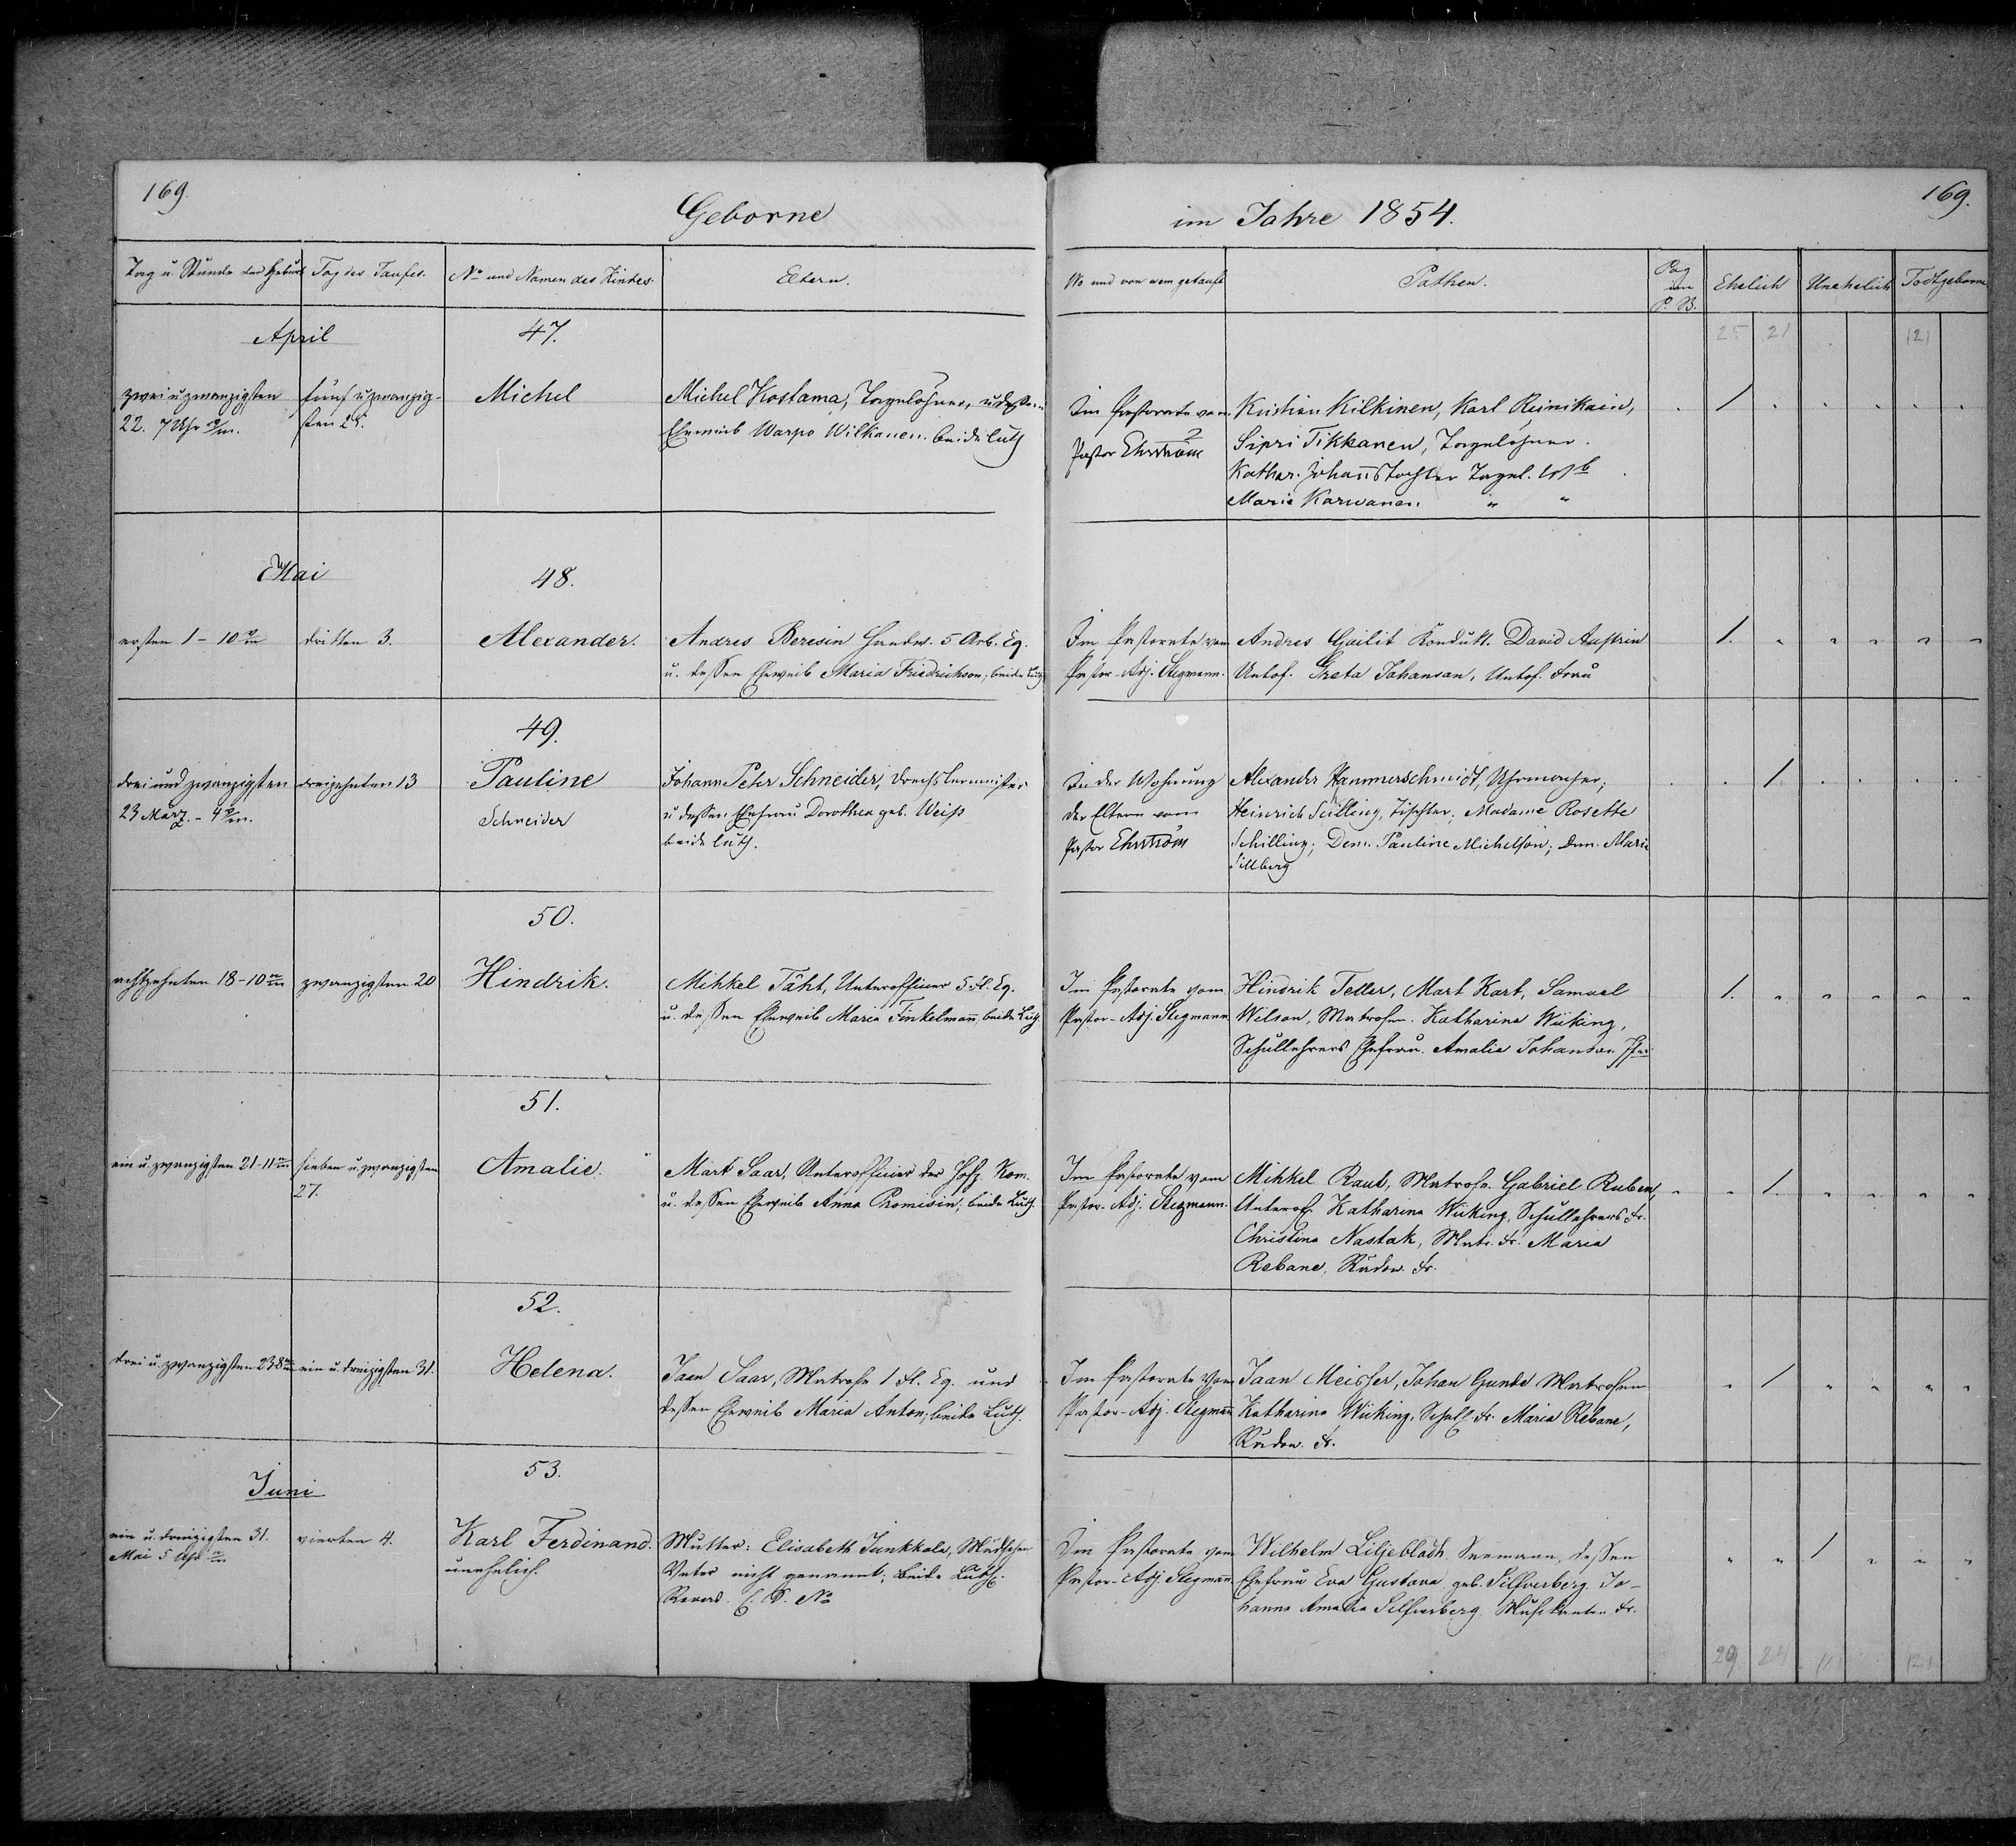 169.
Geborne
im Jahre 1854.
169.
Tag u. Stunde der Geburt
Tag der Taufe.
No und Namen des Kindes.
Eltern.
Wo und von wem getauft
Pathen.
Pag im P. B.
Ehelich
Unehelich
Todtgeborne
25 21 (2)
April
47.
zwei u zwanzigsten
22. 7 Uhr
fünf u zwanzig-
sten 25.
Michel
Michel Kostama, Tagelöhner, u dessen
Eheweib Warpo Wilkanen. beide luth
Im Pastorate vom
Pastor Ehrström
Kristian Kilkinen, Karl Reinikain,
Sipri Tikkanen, Tagelöhner.
Kathar. Johannstochter Tagel.
Maria Karwanen " "
Mai
48.
ersten 1 - 10
dritten 3.
Alexander.
Andres Beresin Handw. 5 Arb. Eq.
u. dessen Eheweib Maria Friedrichson, beide Luth
Im Pastorate vom
Pastor-Adj. Stegmann.
Andres Gailit Kondukt. David Austrin
Untof. Greta Johanson, Untof. Frau
49.
drei und zwanzigsten
23 März. - 4
dreizehnten 13
Pauline
Schneider
Johann Peter Schneider, Drechslermeister
u dessen Ehefrau Dorothea geb. Weiss
beide luth.
In der Wohnung
der Eltern vom
Pastor Ehrström
Alexander Hammerschmidt, Uhrmacher;
Heinrich Scilling, Tischler; Madame Rosette
Schilling; Dem. Pauline Michelson; Dem. Marie
Sillberg
50.
achtzehnten 18 - 10
zwanzigsten 20
Hindrik.
Mihkel Täht, Unterofficier 5 Fl. Eq.
u. dessen Eheweib Maria Finkelmann, beide Luth.
Im Pastorate vom
Pastor-Adj. Stegmann
Hindrik Teller, Mart Kart, Samuel
Wilson, Matrosen. Katharina Wiiking,
Schullehrers Ehefrau. Amalie Johanson
51.
ein u. zwanzigsten 21 - 11
sieben u. zwanzigsten
27.
Amalie.
Mart Saar, Unterofficier der Hosp. Kom.
u. dessen Eheweib Anna Promisin, beide Luth.
Im Pastorate vom
Pastor-Adj. Stegmann.
Mihkel Raub, Matrose. Gabriel Ruben,
Unterof. Katharina Wiiking, Schullehrers Fr.
Christina Nastak, Matr. Fr. Maria
Rebane, Fr.
52.
drei u. zwanzigsten 23 8
ein u. dreizigsten 31.
Helena.
Jaan Saar, Matrose 1 Fl. Eq. und
dessen Eheweib Maria Anton, beide Luth.
Im Pastorate vom
Pastor-Adj. Stegmann
Jaan Meister, Johan Gunde Matrosen
Katharina Wiiking, Schull. Fr. Maria Rebane,
Fr.
Juni
53.
ein u. dreizigsten 31.
Mai 5 Uhr
vierten 4.
Karl Ferdinand.
unehelich.
Mutter: Elisabeth Junkkala, Mädchen
Vater nicht genannt; beide Luth.
Revers. No
Im Pastorate vom
Pastor-Adj. Stegmann
Wilhelm Liljebladh, Seemann, dessen
Ehefrau Eva Gustava geb. Silfverberg. Jo-
hanna Amalia Silfverberg, Musikanten Fr.
29 24 (1) (2)